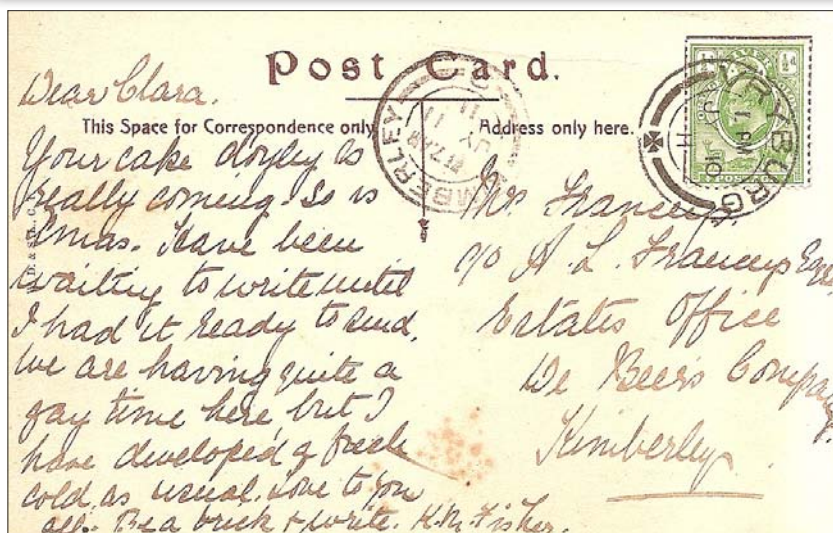 Post Card.
This Space for Correspondence only
Address only here.
Dear Clara.
Your cake doyley is
really coming. So is
Xmas. Have been
waiting to write until
I had it ready to send.
We are having quite a
gay time here but I
have developed a fresh
cold, as usual. Love to you
all. Be a brick & write. K.M. Fisher.
Mrs Franceys.
c/o A. L. Franceys Esq
Estates Office
De Beers Company
Kimberley
KIMBERLEY
VRYBURG
1 PM
10
½d
POSTAGE